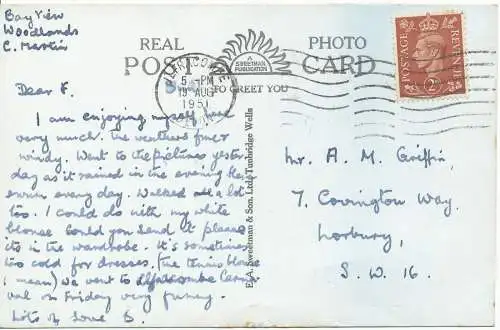 Bay View
Woodlands
C. Martin
REAL PHOTO
POST CARD
A SWEETMAN PUBLICATION
TO GREET YOU
5 - PM
13 AUG
1951
POSTAGE
REVENUE
Dear F.
I am enjoying myself
very much. the weather's
windy. Went to the pictures yester
day as it rained in the evening
every day. Walked a lot
too. I could do with my white
blouse. Could you send it please
its in the wardrobe. it's sometimes
too cold for dresses. (the tennis blouse
I mean) we went to Ilfracombe Carni
val on Friday very funny.
Lots of Love B.
E. A. Sweetman & Son, Ltd. Tunbridge Wells
Mr. A. M. Griffin,
7. Covington Way.
S. W. 16.